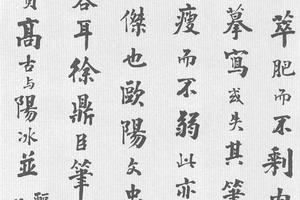 萃肥而不剩肉
摹寫或失其筆
瘦而不弱此亦
傑也歐陽文忠
耳徐鼎臣筆
高古与陽冰並